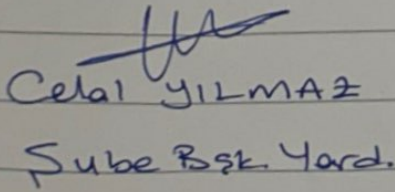 Celal YILMAZ
Şube Bşk. Yard.